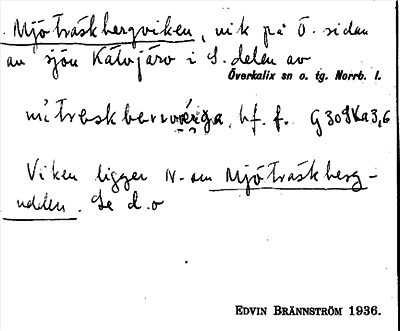 Mjöträskbergviken, vik på Ö. sidan
av sjön Kätojärv i S. delen av
Överkalix sn o. tg. Norrb. l.
bf. f. G 309
Viken ligger N. om Mjöträskberg-
udden. Se d.o
EDVIN BRÄNNSTRÖM 1936.